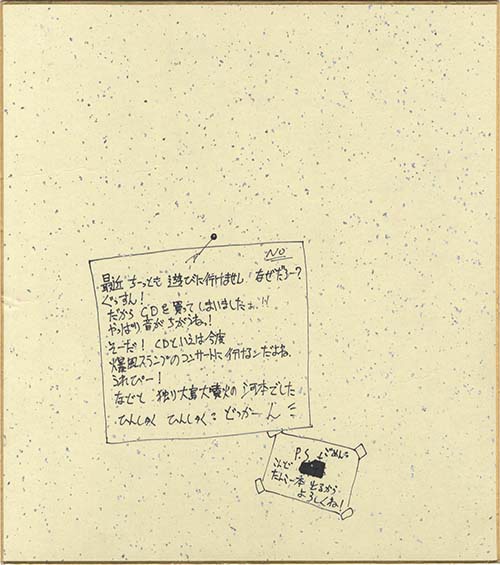 NO
最近 ちっとも 遊びに行けませし なぜだろー?
ぐっすん!
だから CDを買ってしまいましたょ
やっぱり音がちがうねっ!
そーだ! CDといえば今度
爆風スランプのコンサートに行けるンだよね
うれぴー!
などと 独り大島大噴火の河本でした
ひんしゅく ひんしゅく: どっかーん
P.S ごめん:
たんこー本 出るから
よろしくね!